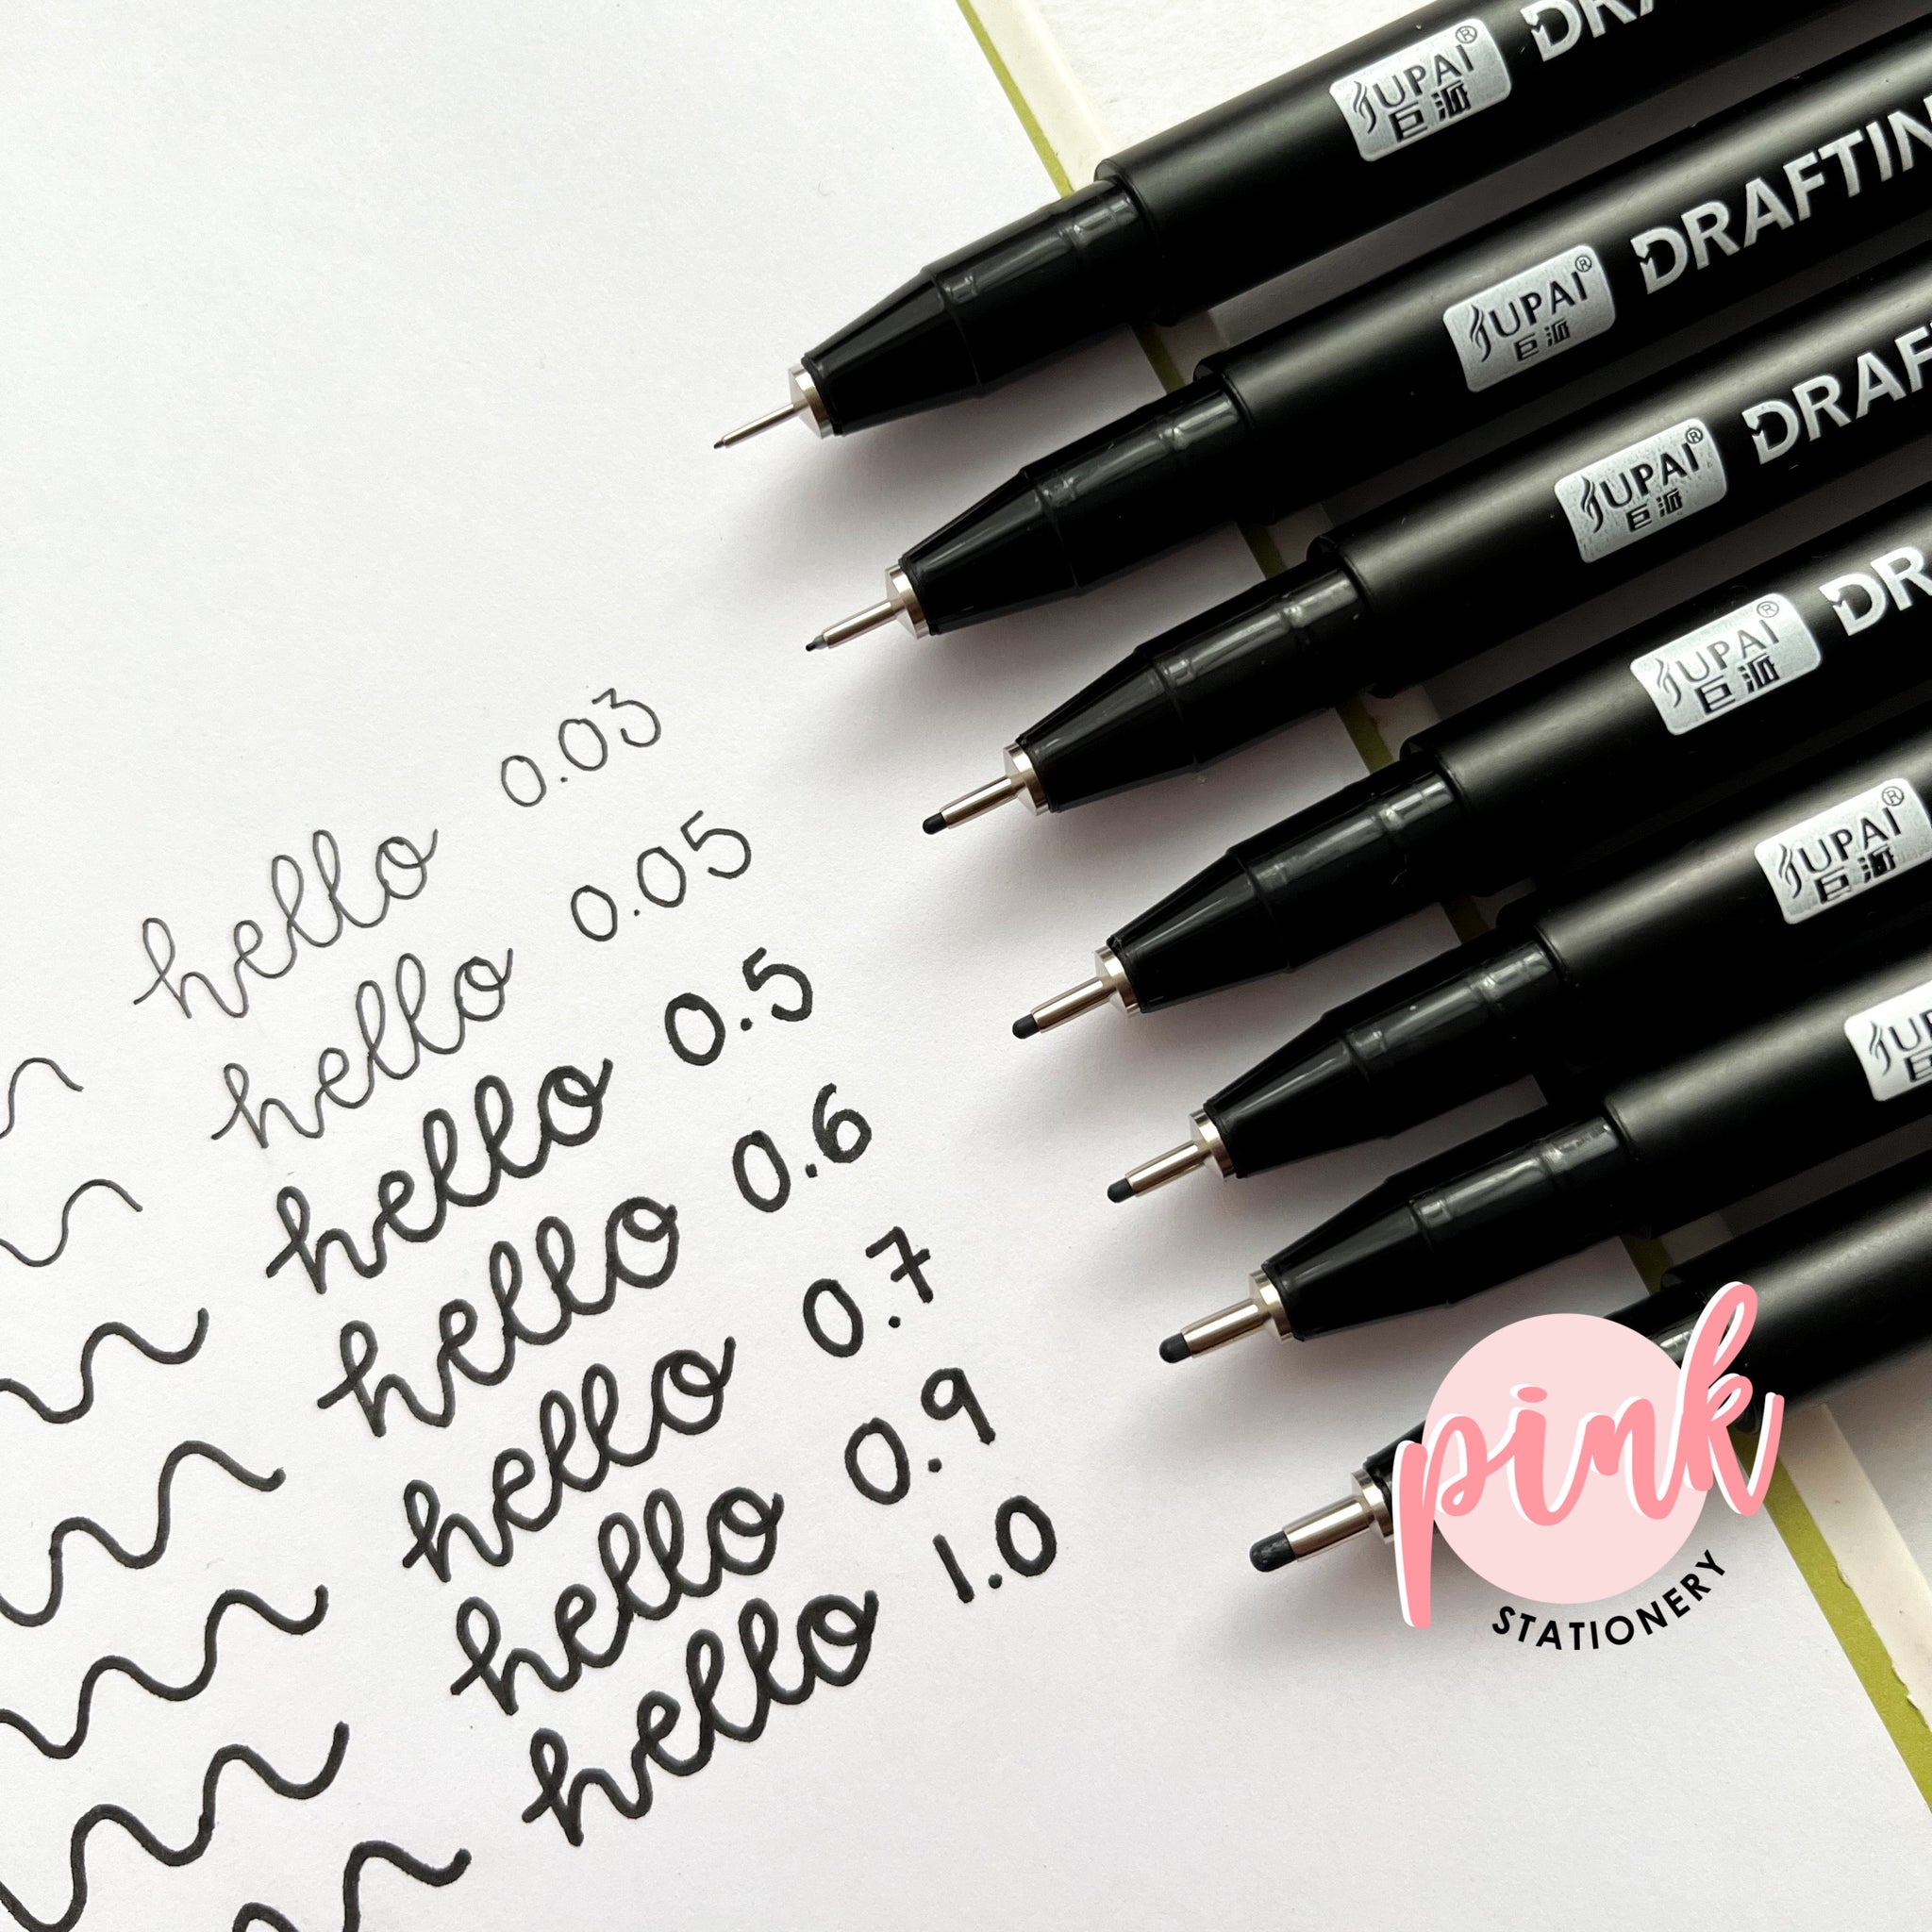 JUPAI®
巨派
DRA
JUPAI®
巨派
DRAFTIN
JUPAI®
巨派
DRAF
JUPAI®
巨派
DR
JUPAI®
巨派
JU
hello 0.03
hello 0.05
hello 0.5
hello 0.6
hello 0.7
hello 0.9
hello 1.0
pink
STATIONERY